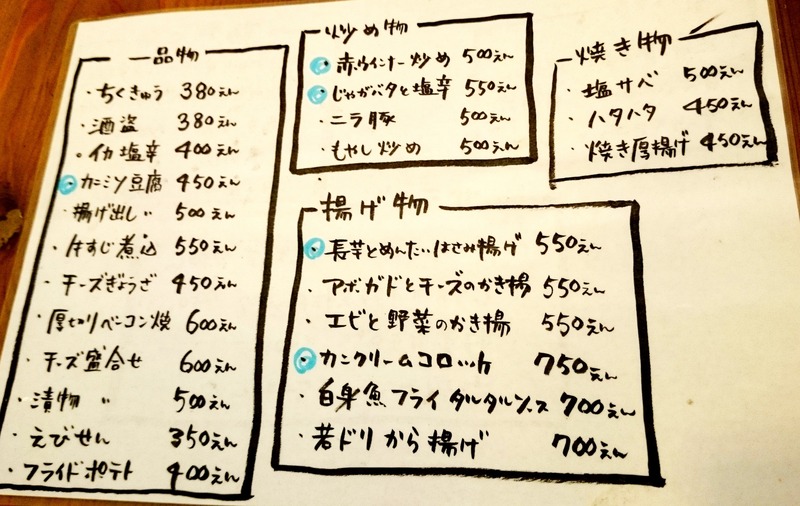 一品物
・ちくきゅう 380えん
・酒盗 380えん
・イカ塩辛 400えん
・カニミソ豆腐 450えん
・揚げ出し〃 500えん
・牛すじ煮込 550えん
・チーズぎょうざ 450えん
・厚切りベーコン焼 600えん
・チーズ盛合せ 600えん
・漬物 〃 500えん
・えびせん 350えん
・フライドポテト 400えん
炒め物
・赤ウインナー炒め 500えん
・じゃがバタと塩辛 550えん
・ニラ豚 500えん
・もやし炒め 500えん
焼き物
・塩サバ 500えん
・ハタハタ 450えん
・焼き厚揚げ 450えん
揚げ物
・長芋とめんたいはさみ揚げ 550えん
・アボガドとチーズのかき揚 550えん
・エビと野菜のかき揚 550えん
・カニクリームコロッケ 750えん
・白身魚フライタルタルソース 700えん
・若ドリから揚げ 700えん